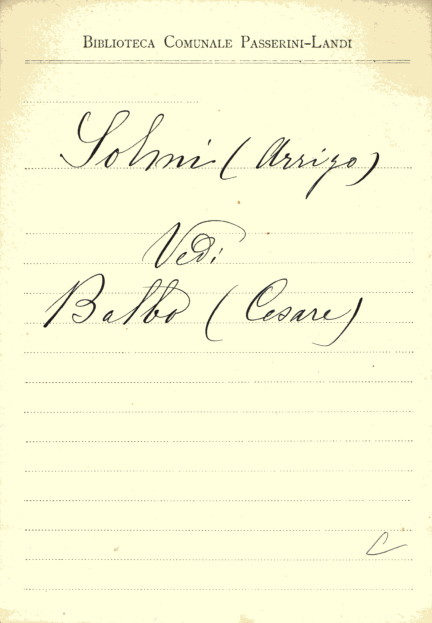 BIBLIOTECA COMUNALE PASSERINI-LANDI
Solmi (Arrigo)
Vedi
Balbo (Cesare)
C